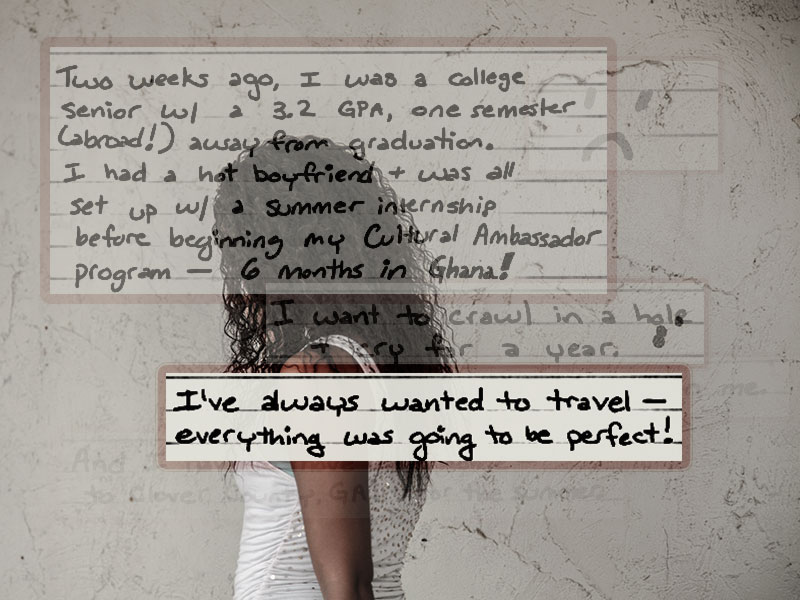 Two weeks ago, I was a college
senior w/ a 3.2 GPA, one semester
(abroad!) away from graduation.
I had a hot boyfriend + was all
set up w/ a summer internship
before beginning my Cultural Ambassador
program — 6 months in Ghana!
I want to crawl in a hole
+ cry for a year.
I've always wanted to travel —
everything was going to be perfect!
me.
And I have
to Clover County, GA for the summer